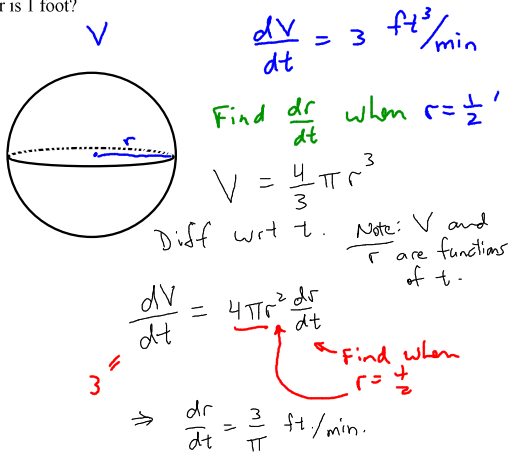 r is 1 foot?
V
dV/dt = 3 ft³/min
r
Find dr/dt when r = 1/2 '
V = 4/3 π r³
Diff wrt t.
Note: V and
r are functions
of t.
dV/dt = 4πr² dr/dt
3 "
Find when
r = 1/2
⇒ dr/dt = 3/π ft./min.